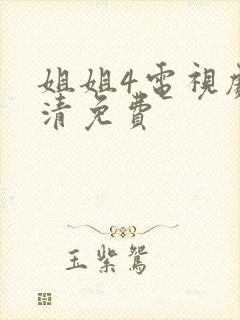 姐姐4電視
清免費
玉紫鴛